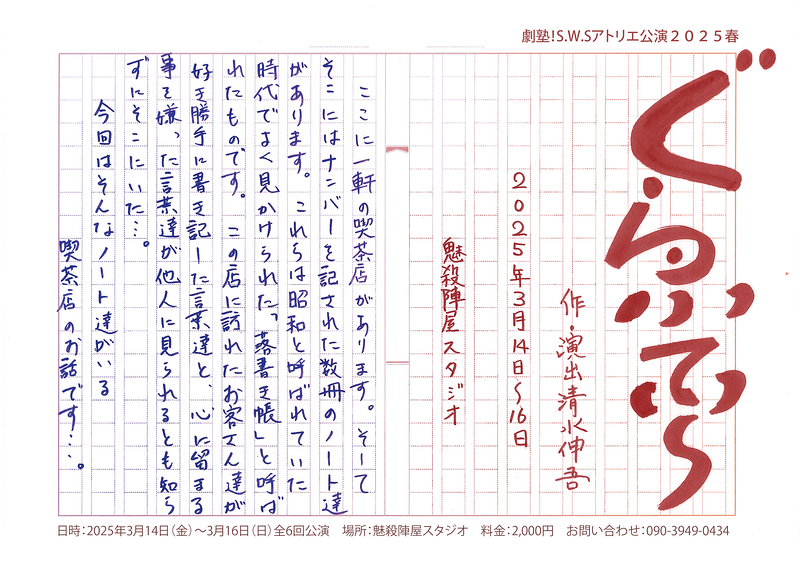 劇塾!S.W.Sアトリエ公演２０２５春
ぐらふてぃ
作・演出清水伸吾
2025年3月14日～16日
魅殺陣屋スタジオ
ここに一軒の喫茶店があります。そして
そこにはナンバーを記された数冊のノート達
があります。これらは昭和と呼ばれていた
時代でよく見かけられた「落書き帳」と呼ば
れたものです。この店に訪れたお客さん達が
好き勝手に書き記した言葉達と、心に留まる
事を嫌った言葉達が他人に見られるとも知ら
ずにそこにいた…。
今回はそんなノート達がいる
喫茶店のお話です…。
日時：2025年3月14日（金）～3月16日（日）全6回公演　場所：魅殺陣屋スタジオ　料金：2,000円　お問い合わせ：090-3949-0434